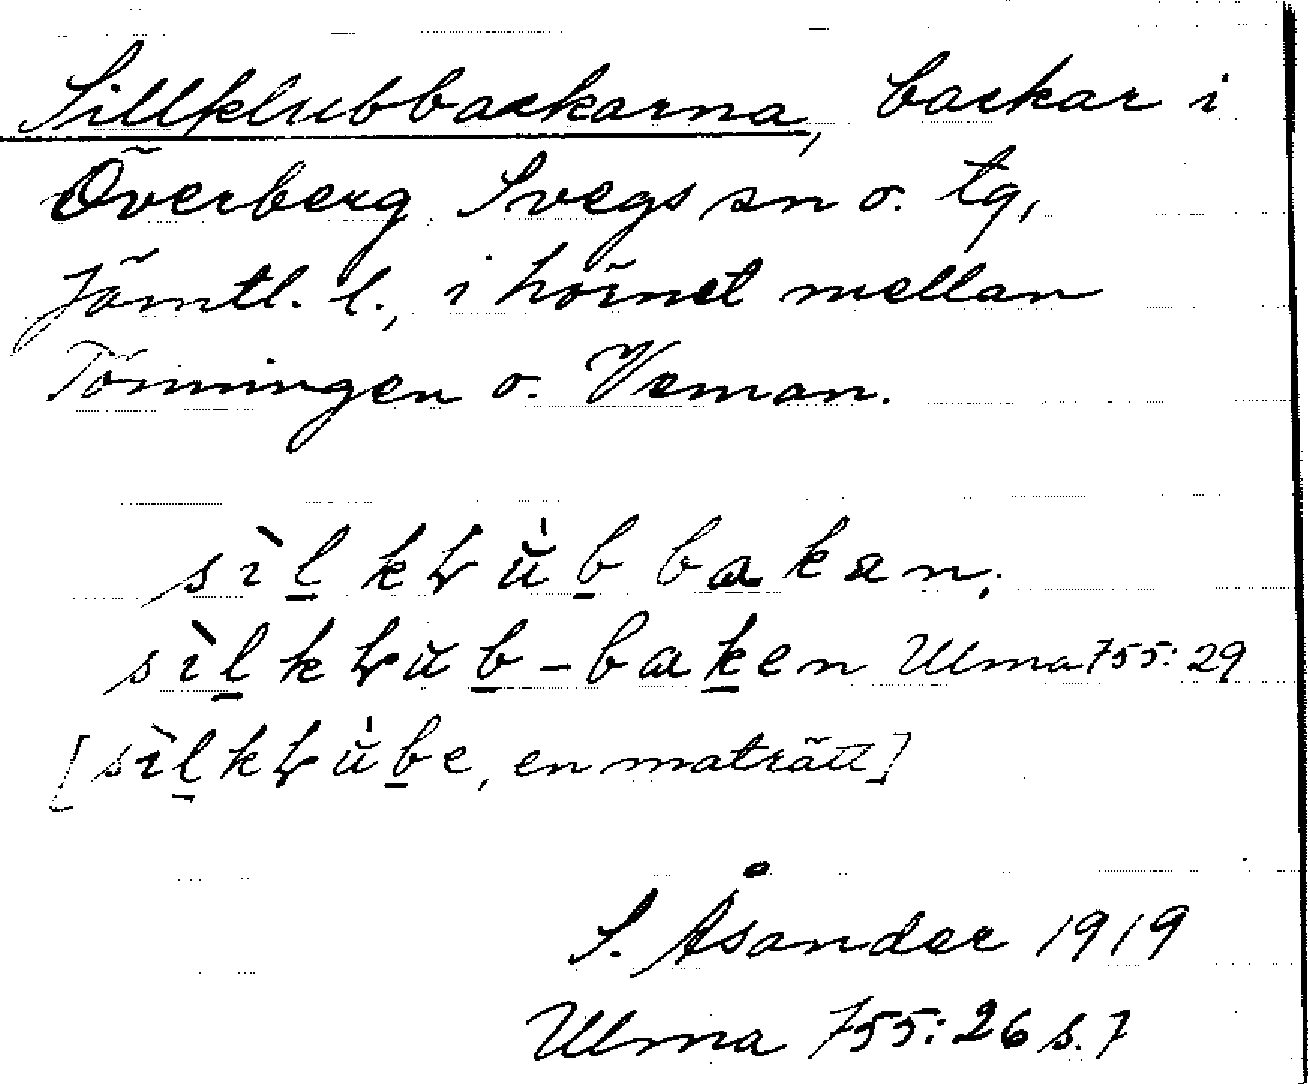 Sillklubbackarna, backar i
Överberg, Svegs sn o. tg,
Jämtl. l., i hörnet mellan
Tönningen o. Veman.
sìl̲kɫŭ̀b̲bakan,
sìl̲kɫŭb̲-bak̲en Ulma 755:29
[sìl̲kɫŭ̀b̲e, en maträtt]
S. Åsander 1919
Ulma 755:26 s. 7